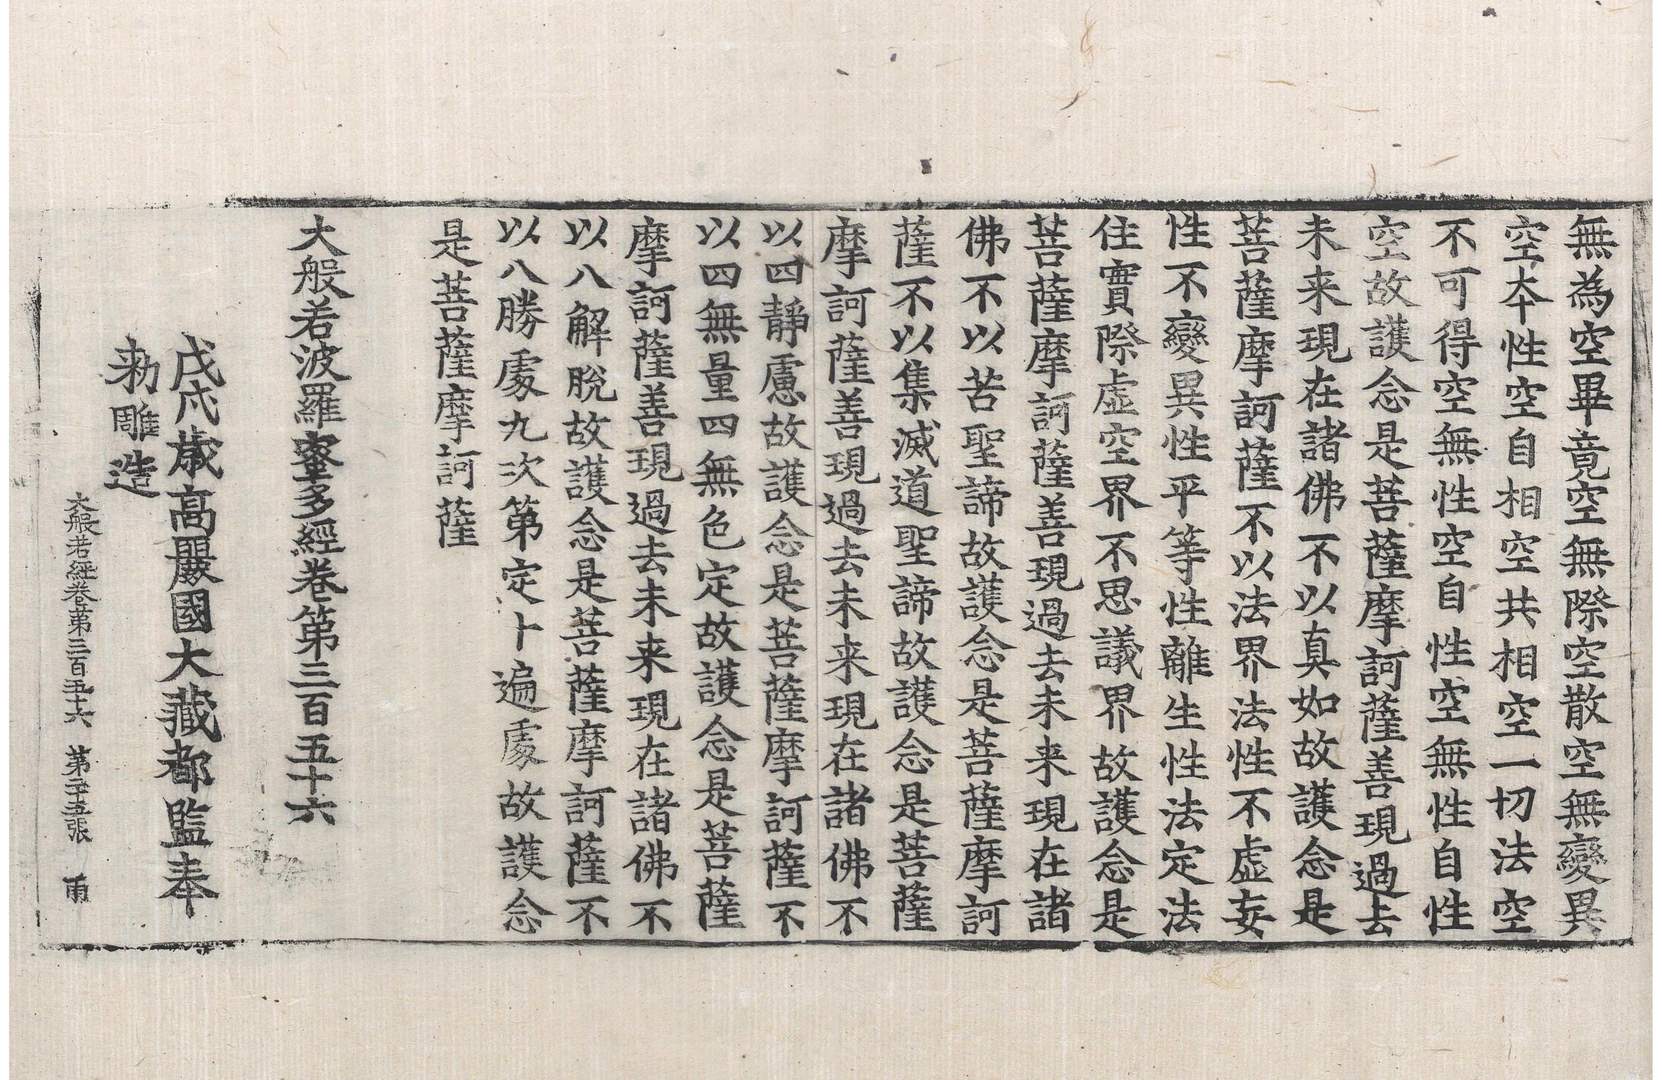 無為空畢竟空無際空散空無變異
空本性空自相空共相空一切法空
不可得空無性空自性空無性自性
空故護念是菩薩摩訶薩善現過去
未来現在諸佛不以真如故護念是
菩薩摩訶薩不以法界法性不虛妄
性不變異性平等性離生性法定法
住實際虛空界不思議界故護念是
菩薩摩訶薩善現過去未来現在諸
佛不以苦聖諦故護念是菩薩摩訶
薩不以集滅道聖諦故護念是菩薩
摩訶薩善現過去未来現在諸佛不
以四靜慮故護念是菩薩摩訶薩不
以四無量四無色定故護念是菩薩
摩訶薩善現過去未来現在諸佛不
以八解脫故護念是菩薩摩訶薩不
以八勝處九次第定十遍處故護念
是菩薩摩訶薩
大般若波羅蜜多經卷第三百五十六
戊戌歲高麗國大藏都監奉
勑雕造
大般若經卷第三百五十六 第二十五張 雨